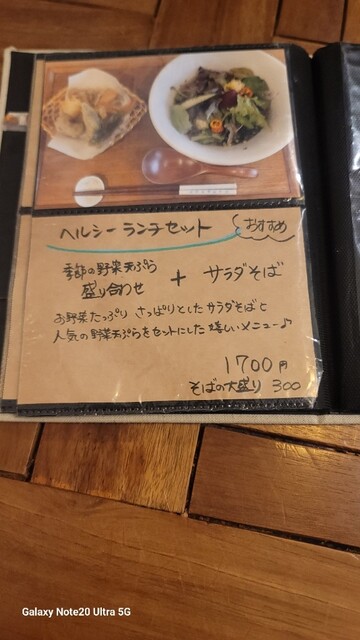 ヘルシーランチセット
おすすめ
季節の野菜天ぷら
盛り合わせ
+
サラダそば
お野菜たっぷり さっぱりとしたサラダそばと
人気の野菜天ぷらをセットにした嬉しいメニュー♪
1700円
そばの大盛り 300
Galaxy Note20 Ultra 5G